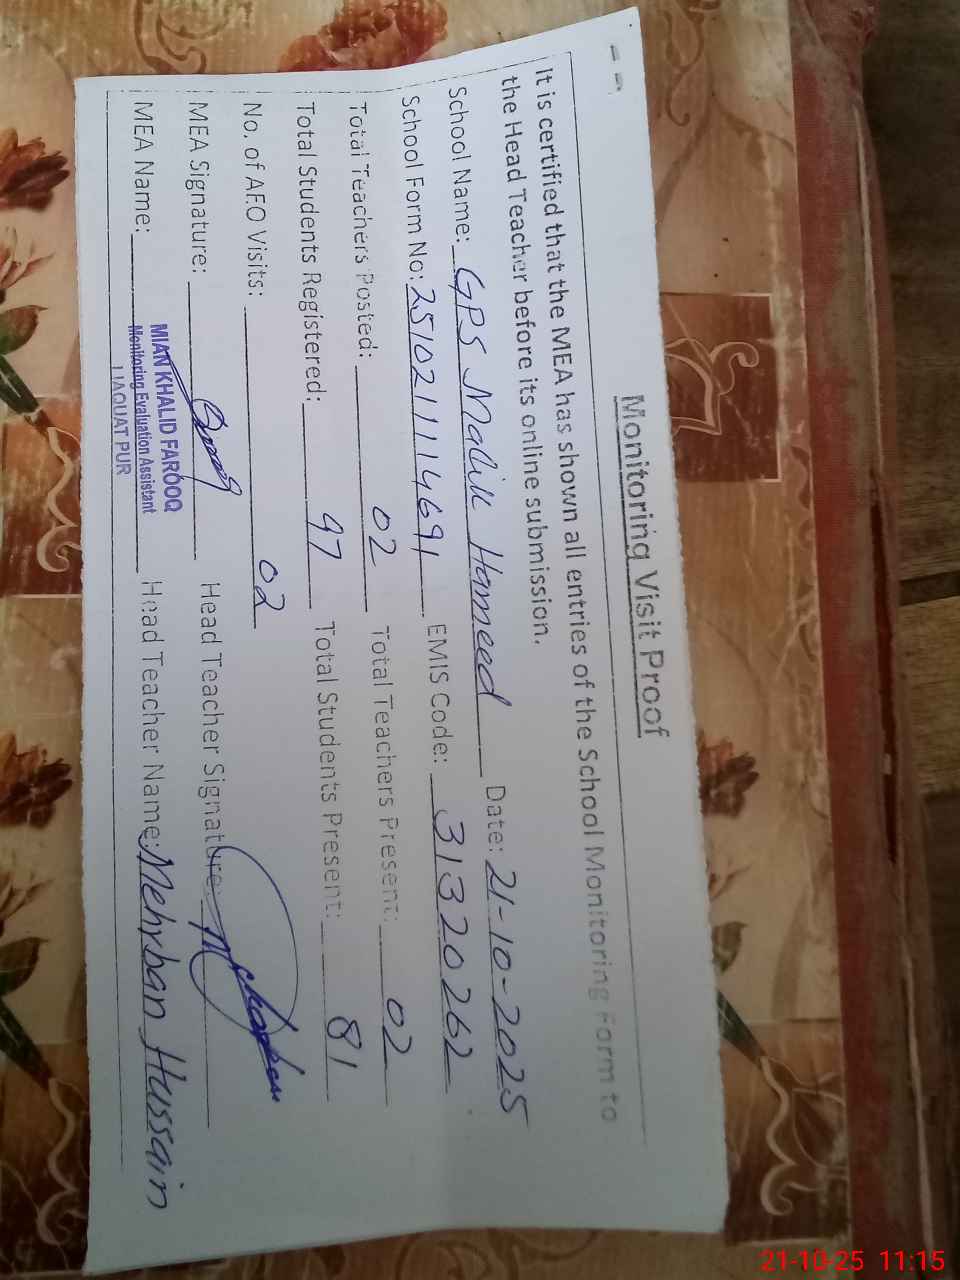 Monitoring Visit Proof
It is certified that the MEA has shown all entries of the School Monitoring Form to
the Head Teacher before its online submission.
School Name: GPS Malik Hameed Date: 21-10-2025
School Form No: 251021114691 EMIS Code: 31320262
Total Teachers Posted: 02 Total Teachers Present: 02
Total Students Registered: 97 Total Students Present: 81
No. of AEO Visits: 02
MEA Signature: Head Teacher Signature:
MEA Name: MIAN KHALID FAROOQ Head Teacher Name: Mehrban Hussain
Monitoring Evaluation Assistant
LIAQUAT PUR
21-10-25 11:15